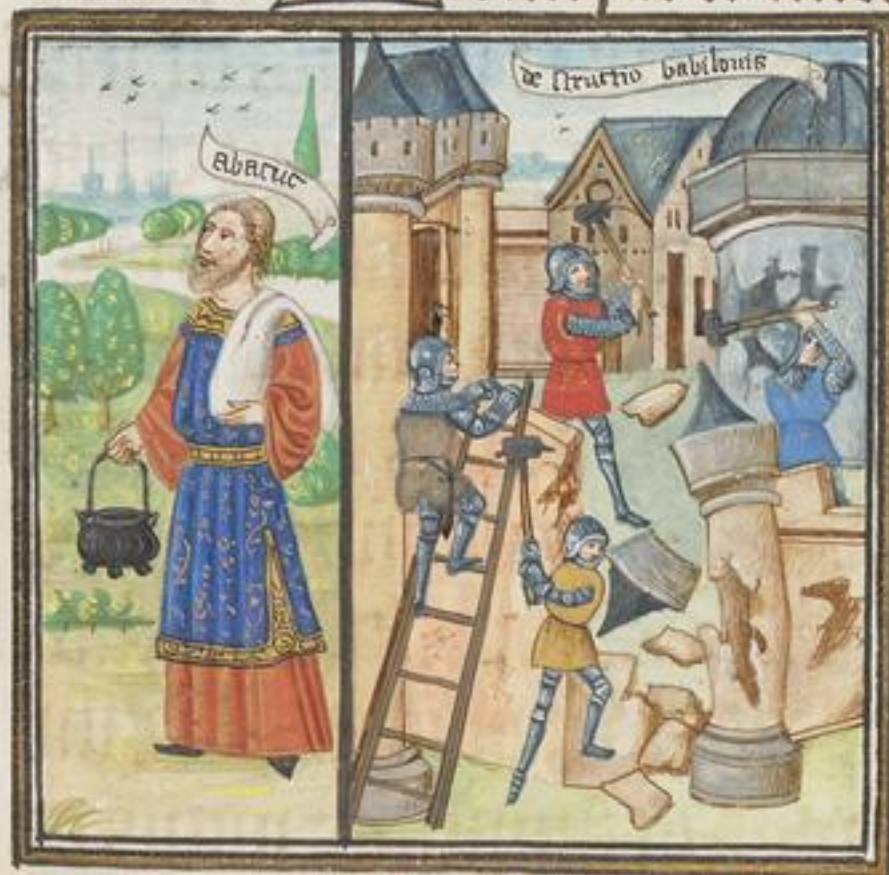 abacuc
de structio babilonis